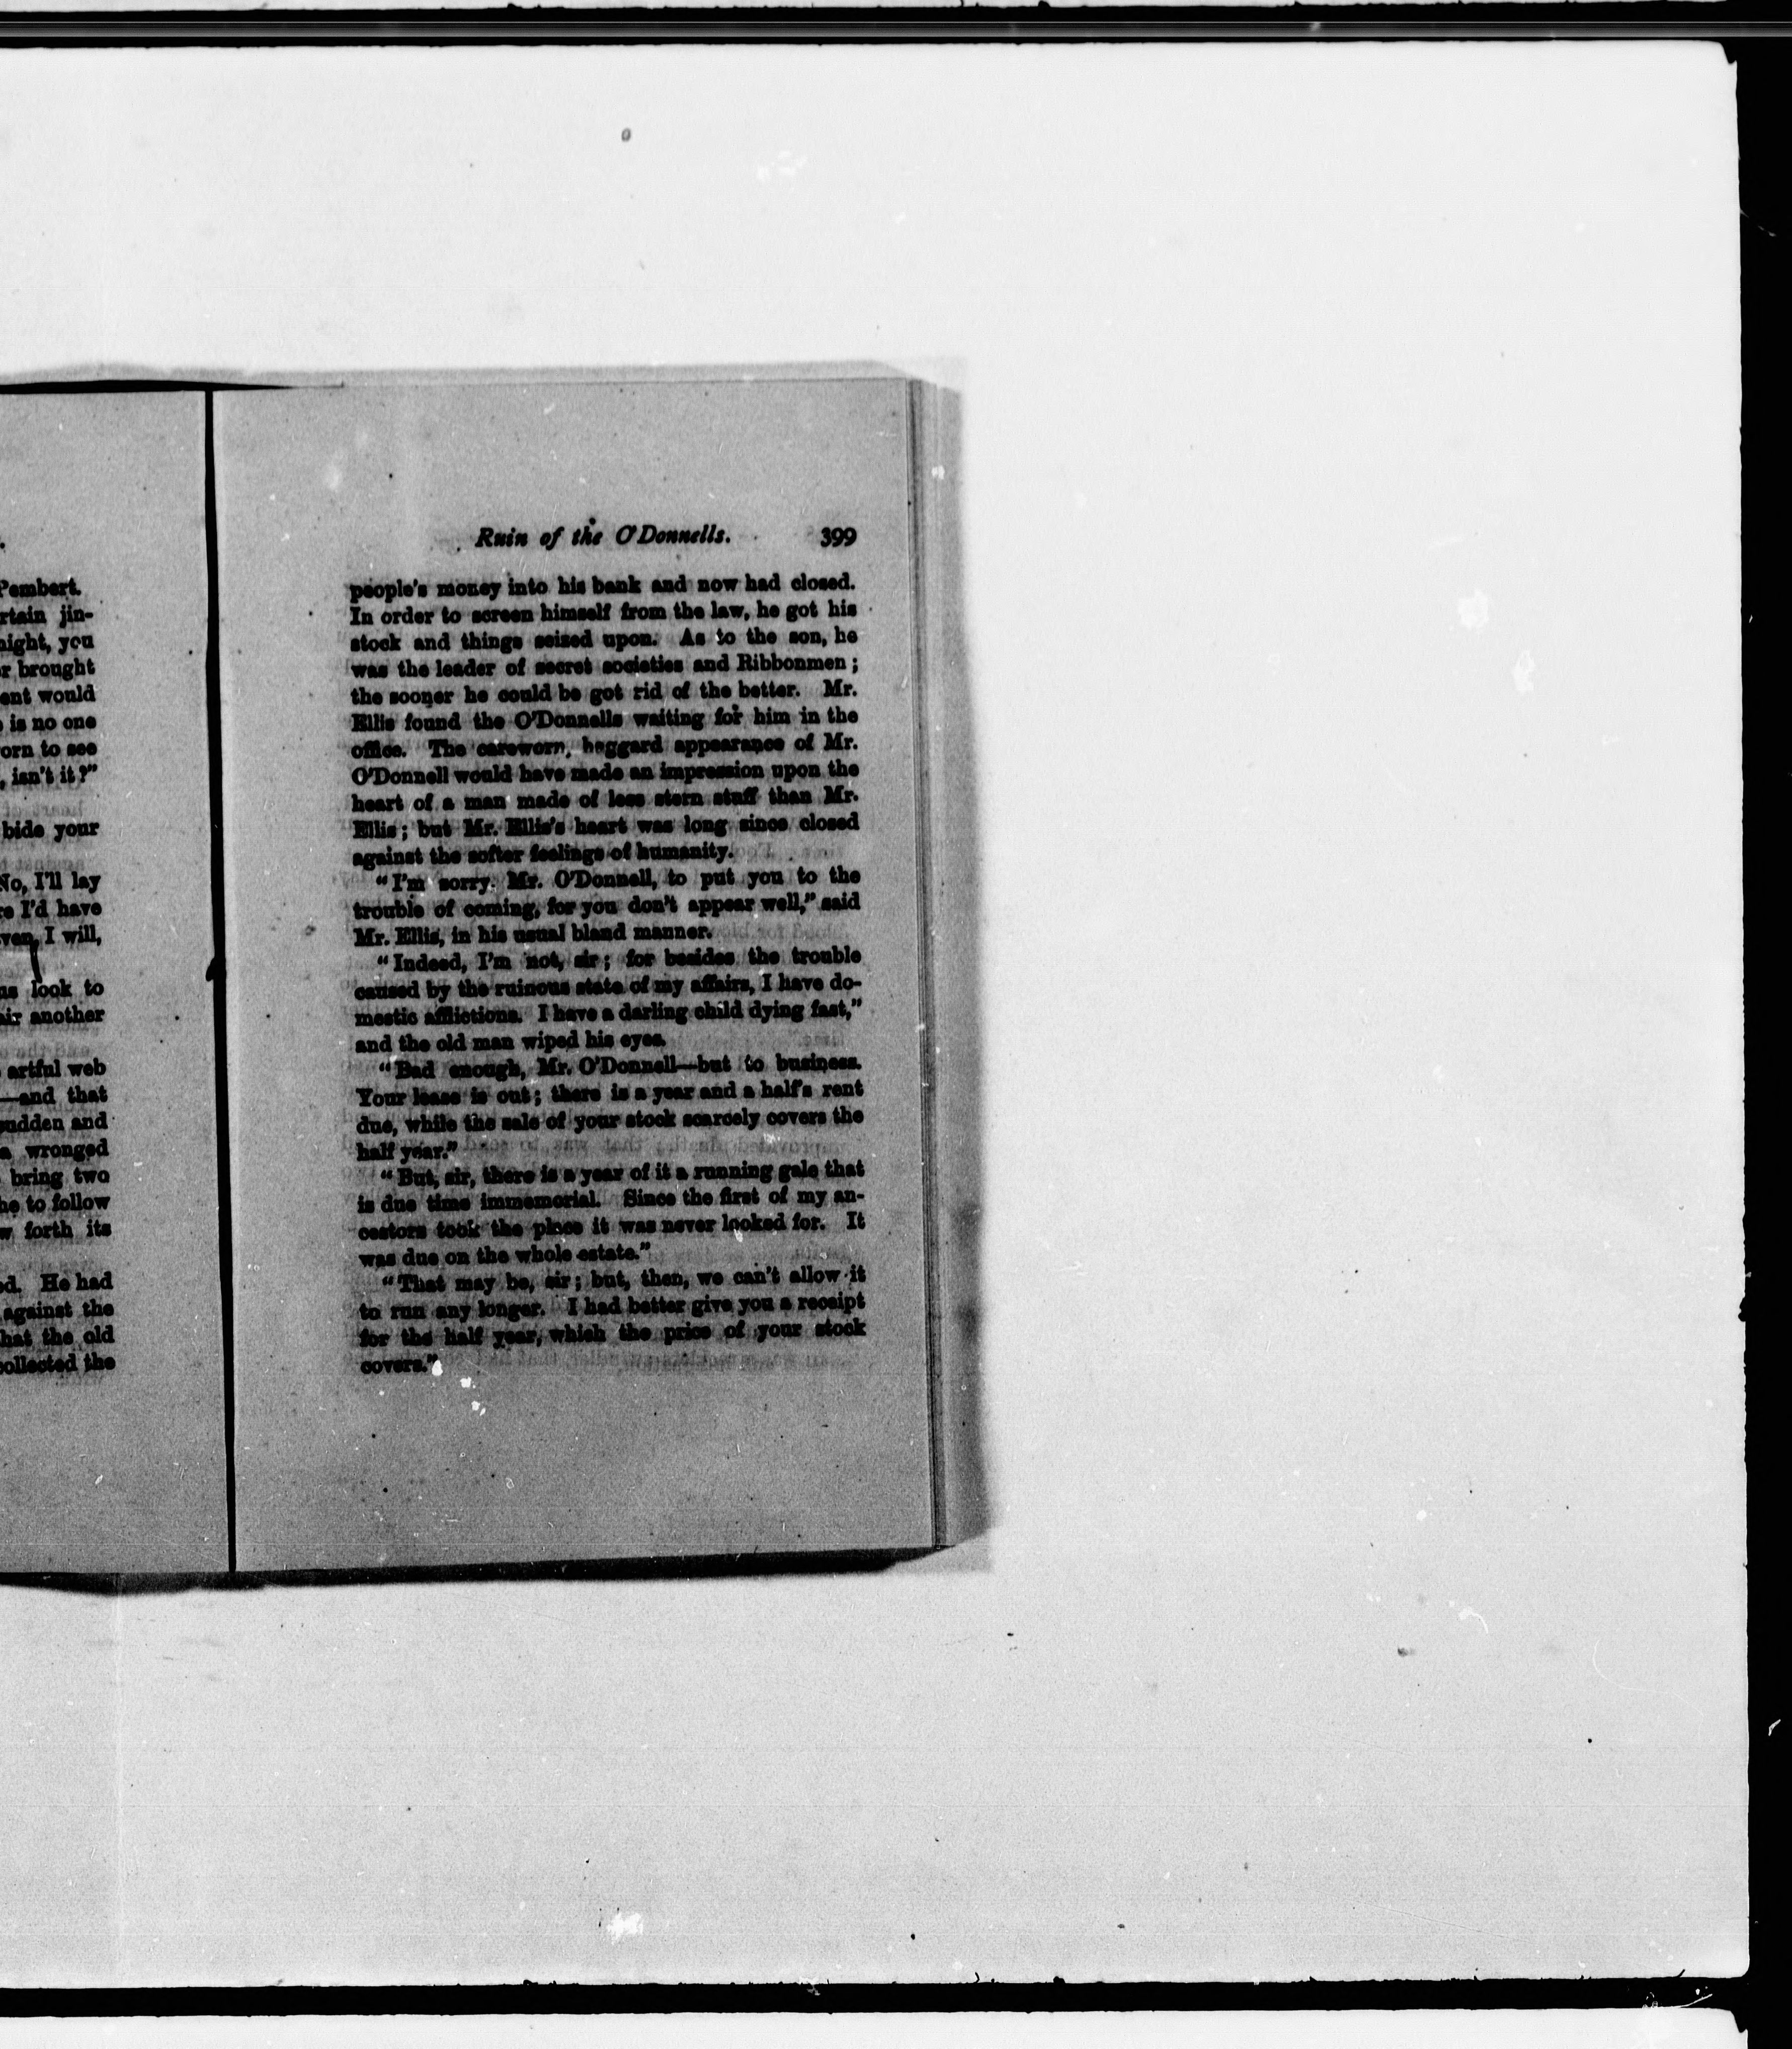 .
Pembert.
rtain jin-
night, you
r brought
ent would
is no one
orn to see
, isn't it?"
bide your
No, I'll lay
re I'd have
ven, I will,
us look to
air another
artful web
—and that
sudden and
a wronged
bring two
he to follow
w forth its
ed. He had
against the
hat the old
collected the
Ruin of the O'Donnells. 399
people's money into his bank and now had closed.
In order to screen himself from the law, he got his
stock and things seized upon. As to the son, he
was the leader of secret societies and Ribbonmen;
the sooner he could be got rid of the better. Mr.
Ellis found the O'Donnells waiting for him in the
office. The careworn, haggard appearance of Mr.
O'Donnell would have made an impression upon the
heart of a man made of less stern stuff than Mr.
Ellis; but Mr. Ellis's heart was long since closed
against the softer feelings of humanity.
"I'm sorry. Mr. O'Donnell, to put you to the
trouble of coming, for you don't appear well," said
Mr. Ellis, in his usual bland manner.
"Indeed, I'm not, sir; for besides the trouble
caused by the ruinous state of my affairs, I have do-
mestic afflictions. I have a darling child dying fast,"
and the old man wiped his eyes.
"Bad enough, Mr. O'Donnell—but to business.
Your lease is out; there is a year and a half's rent
due, while the sale of your stock scarcely covers the
half year."
"But, sir, there is a year of it a running gale that
is due time immemorial. Since the first of my an-
cestors took the place it was never looked for. It
was due on the whole estate."
"That may be, sir; but, then, we can't allow it
to run any longer. I had better give you a receipt
for the half year, which the price of your stock
covers."